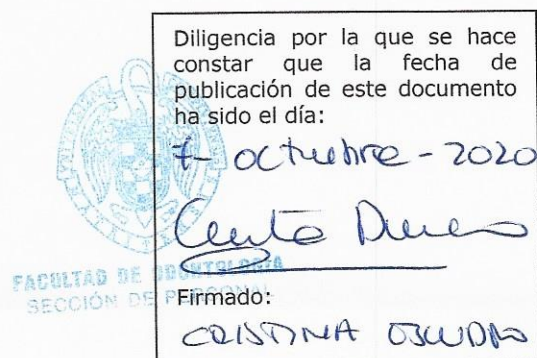 Diligencia por la que se hace
constar que la fecha de
publicación de este documento
ha sido el día:
7- octubre - 2020
FACULTAD DE ODONTOLOGÍA
SECCIÓN DE PERSONAL
Firmado:
CRISTINA ESCUDERO